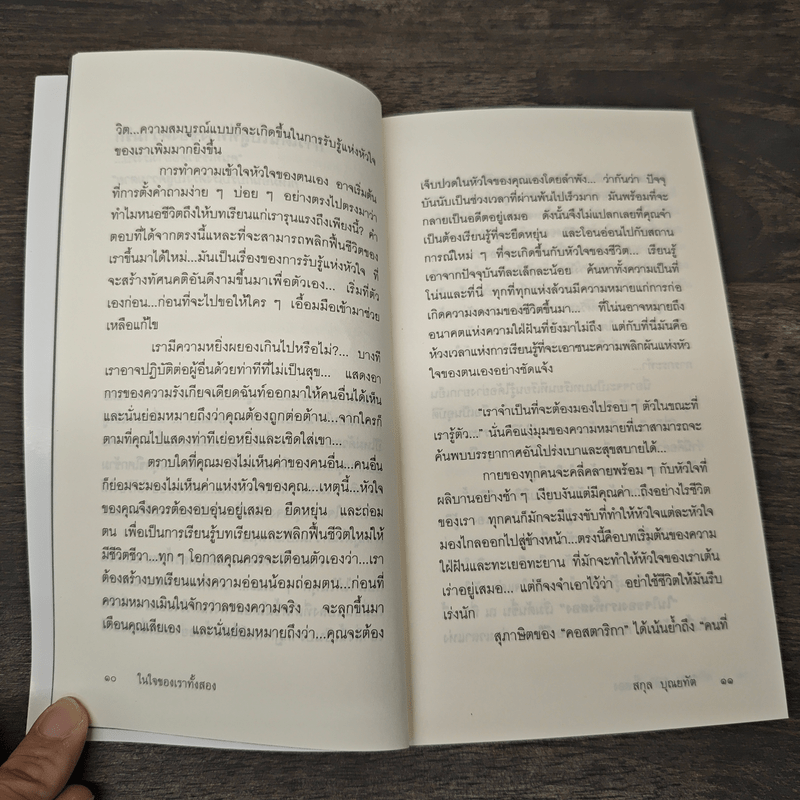 วิต...ความสมบูรณ์แบบก็จะเกิดขึ้นในการรับรู้แห่งหัวใจ
ของเราเพิ่มมากยิ่งขึ้น
การทำความเข้าใจหัวใจของตนเอง อาจเริ่มต้น
ที่การตั้งคำถามง่าย ๆ บ่อย ๆ อย่างตรงไปตรงมาว่า
ทำไมหนอชีวิตถึงให้บทเรียนแก่เรารุนแรงถึงเพียงนี้? คำ
ตอบที่ได้จากตรงนี้แหละที่จะสามารถพลิกฟื้นชีวิตของ
เราขึ้นมาได้ใหม่...มันเป็นเรื่องของการรับรู้แห่งหัวใจ ที่
จะสร้างทัศนคติอันดีงามขึ้นมาเพื่อตัวเอง... เริ่มที่ตัว
เองก่อน...ก่อนที่จะไปขอให้ใคร ๆ เอื้อมมือเข้ามาช่วย
เหลือแก้ไข
เรามีความหยิ่งผยองเกินไปหรือไม่?... บางที
เราอาจปฏิบัติต่อผู้อื่นด้วยท่าทีที่ไม่เป็นสุข... แสดงอา
การของความรังเกียจเดียดฉันท์ออกมาให้คนอื่นได้เห็น
และนั่นย่อมหมายถึงว่าคุณต้องถูกต่อต้าน...จากใครก็
ตามที่คุณไปแสดงท่าทีเย่อหยิ่งและเชิดใส่เขา...
ตราบใดที่คุณมองไม่เห็นค่าของคนอื่น...คนอื่น
ก็ย่อมจะมองไม่เห็นค่าแห่งหัวใจของคุณ...เหตุนี้...หัวใจ
ของคุณจึงควรต้องอบอุ่นอยู่เสมอ ยืดหยุ่น และถ่อม
ตน เพื่อเป็นการเรียนรู้บทเรียนและพลิกฟื้นชีวิตใหม่ให้
มีชีวิตชีวา...ทุก ๆ โอกาสคุณควรจะเตือนตัวเองว่า...เรา
ต้องสร้างบทเรียนแห่งความอ่อนน้อมถ่อมตน...ก่อนที่
ความหมางเมินในจักรวาลของความจริง จะลุกขึ้นมา
เตือนคุณเสียเอง และนั่นย่อมหมายถึงว่า...คุณจะต้อง
๑๐ ในใจของเราทั้งสอง
เจ็บปวดในหัวใจของคุณเองโดยลำพัง... ว่ากันว่า ปัจจุ
บันนับเป็นช่วงเวลาที่ผ่านพ้นไปเร็วมาก มันพร้อมที่จะ
กลายเป็นอดีตอยู่เสมอ ดังนั้นจึงไม่แปลกเลยที่คุณจำ
เป็นต้องเรียนรู้ที่จะยืดหยุ่น และโอนอ่อนไปกับสถาน
การณ์ใหม่ ๆ ที่จะเกิดขึ้นกับหัวใจของชีวิต... เรียนรู้
เอาจากปัจจุบันทีละเล็กละน้อย ค้นหาทั้งความเป็นที่
โน่นและที่นี่ ทุกที่ทุกแห่งล้วนมีความหมายแก่การก่อ
เกิดความงดงามของชีวิตขึ้นมา... ที่โน่นอาจหมายถึง
อนาคตแห่งความใฝ่ฝันที่ยังมาไม่ถึง แต่กับที่นี่มันคือ
ห้วงเวลาแห่งการเรียนรู้ที่จะเอาชนะความพลิกผันแห่งหัว
ใจของตนเองอย่างชัดแจ้ง
"เราจำเป็นที่จะต้องมองไปรอบ ๆ ตัวในขณะที่
เรารู้ตัว..." นั่นคือแง่มุมของความหมายที่เราสามารถจะ
ค้นพบบรรยากาศอันโปร่งเบาและสุขสบายได้...
กายของทุกคนจะคลี่คลายพร้อม ๆ กับหัวใจที่
ผลิบานอย่างช้า ๆ เงียบงันแต่มีคุณค่า...ถึงอย่างไรชีวิต
ของเรา ทุกคนก็มักจะมีแรงขับที่ทำให้หัวใจแต่ละหัวใจ
มองไกลออกไปสู่ข้างหน้า...ตรงนี้คือบทเริ่มต้นของความ
ใฝ่ฝันและทะเยอทะยาน ที่มักจะทำให้หัวใจของเราเต้น
เร่าอยู่เสมอ... แต่ก็จงจำเอาไว้ว่า อย่าใช้ชีวิตให้มันรีบ
เร่งนัก
สุภาษิตของ "คอสตาริกา" ได้เน้นย้ำถึง "คนที่
สกุล บุณยทัต ๑๑